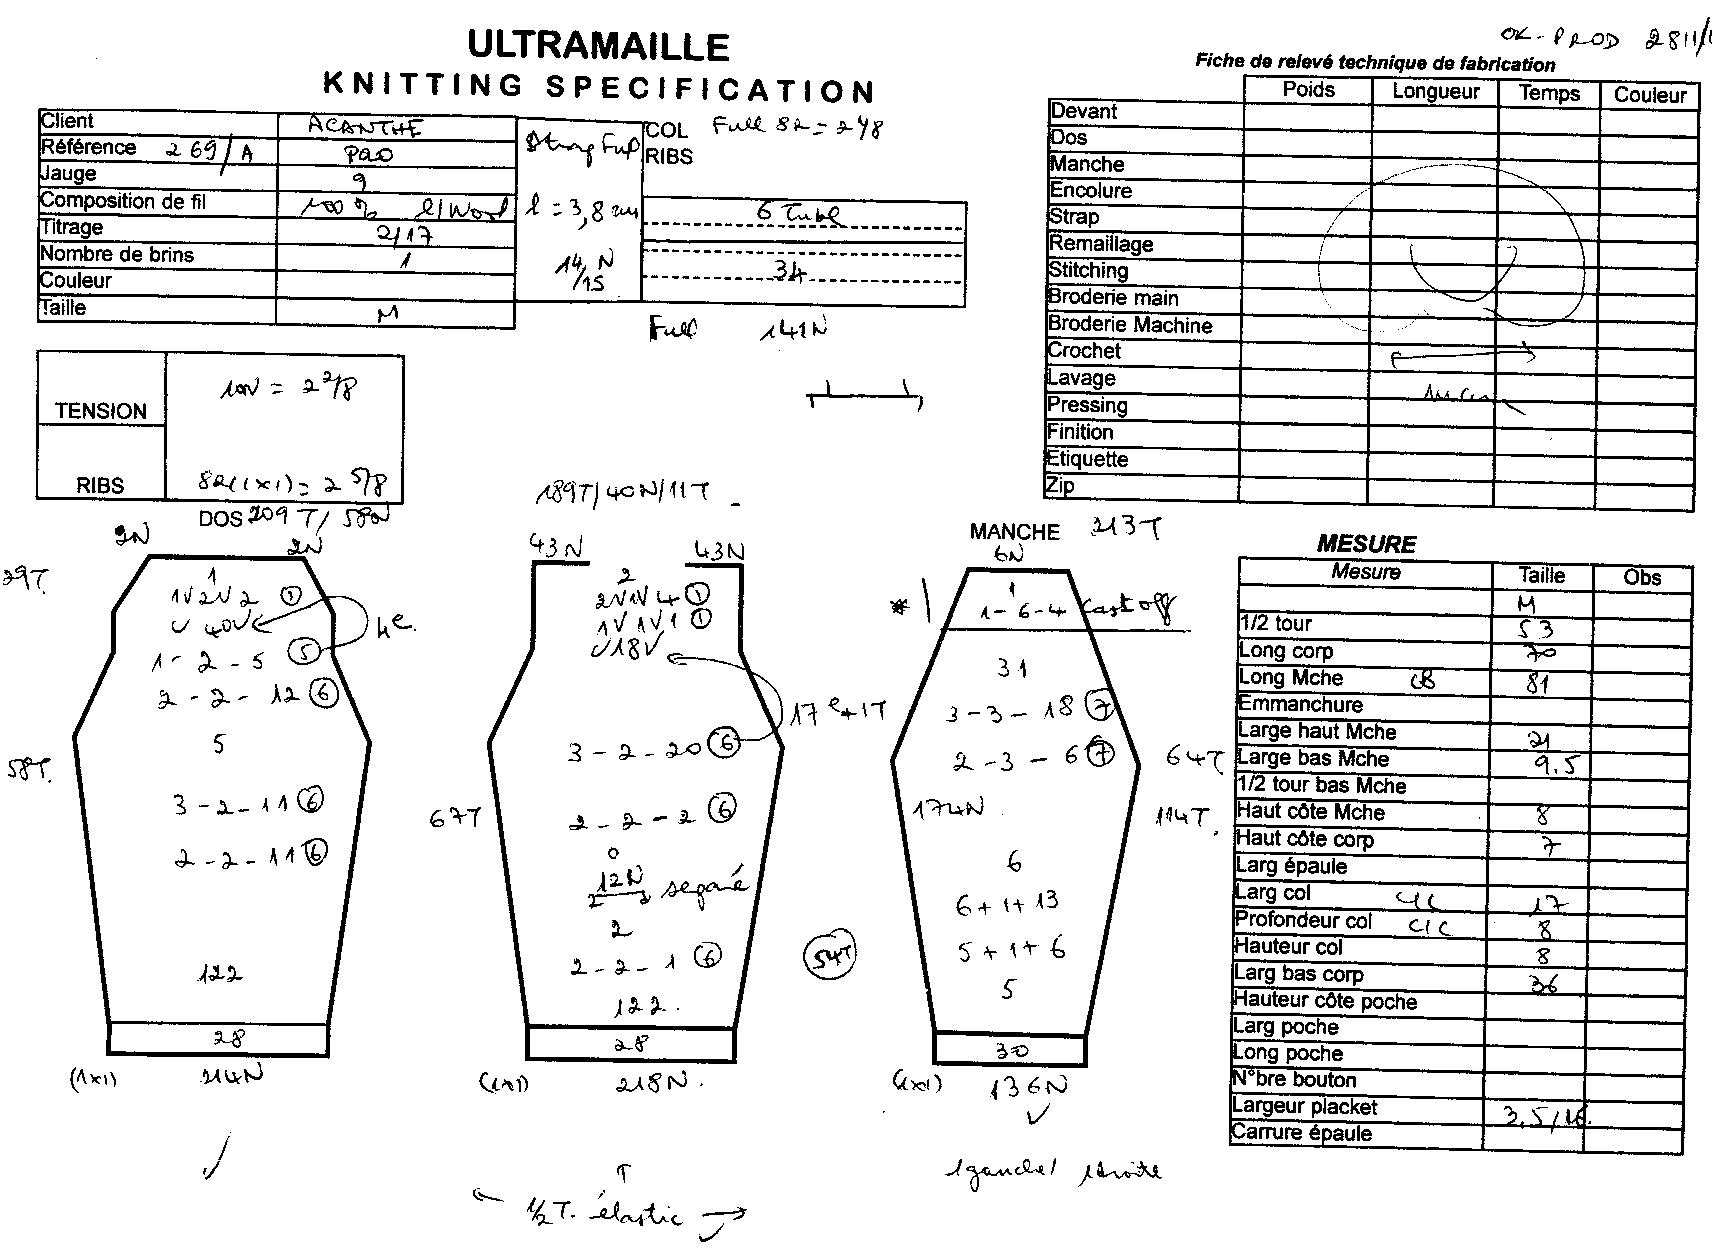 ULTRAMAILLE
KNITTING SPECIFICATION
OK-PROD
Fiche de relevé technique de fabrication
Client ACANTHE
Référence 269/A
Jauge 9
Composition de fil 100 %
Titrage 2/17
Nombre de brins 1
Couleur
Taille M
Strap Full
l = 3,8 cm
14/15 N
COL Full 82 = 248
RIBS
6 Tubl
34
Full 141N
TENSION 10N = 2 2/8
RIBS 82(1x1) = 2 5/8
Poids Longueur Temps Couleur
Devant
Dos
Manche
Encolure
Strap
Remaillage
Stitching
Broderie main
Broderie Machine
Crochet
Lavage
Pressing
Finition
Etiquette
Zip
DOS 209T/58N
2N 2N
29T.
1
1V2V2 ①
40V
4e
1-2-5 ⑤
2-2-12 ⑥
5
58T.
3-2-11 ⑥
2-2-11 ⑥
122
28
(1x1) 214N
189T/40N/11T
43N 43N
2
2V1V4 ①
1V1V1 ①
18V
17e+1T
3-2-20 ⑥
2-2-2 ⑥
67T
0
12N separé
2
2-2-1 ⑥
122.
28
(1x1) 218N.
1/2T. élastic
54T
MANCHE 213T
6N
* 1
1-6-4 cast off
31
3-3-18 ⑦
2-3-6 ⑦
64T
174N
114T.
6
6+1+13
5+1+6
5
30
(1x1) 136N
1gauche/ 1droite
MESURE
Mesure Taille Obs
M
1/2 tour 53
Long corp 70
Long Mche CB 81
Emmanchure
Large haut Mche 21
Large bas Mche 9.5
1/2 tour bas Mche
Haut côte Mche 8
Haut côte corp 7
Larg épaule
Larg col C/C 17
Profondeur col C/C 8
Hauteur col 8
Larg bas corp 36
Hauteur côte poche
Larg poche
Long poche
N°bre bouton
Largeur placket 3,5/16
Carrure épaule